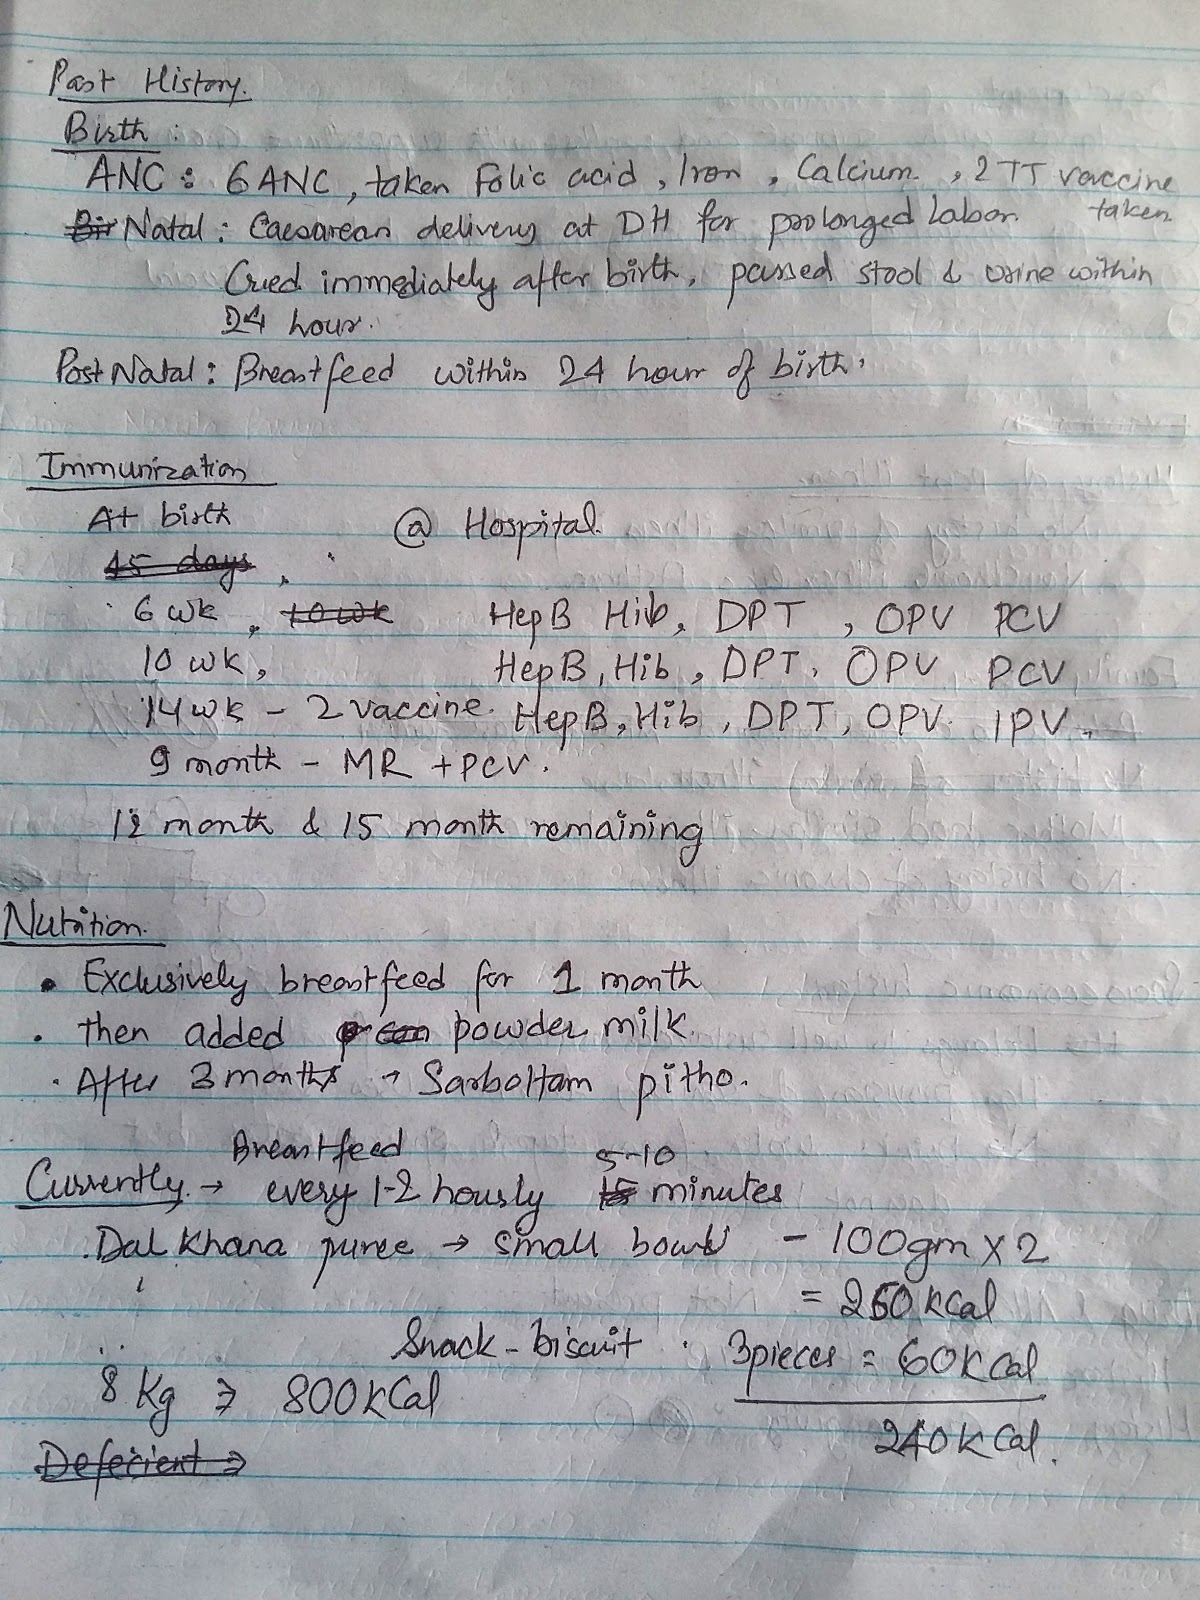 Past History.
Birth :
ANC : 6 ANC, taken Folic acid, Iron, Calcium, 2 TT vaccine taken
Natal : Caesarean delivery at DH for prolonged labor.
Cried immediately after birth, passed stool & urine within
24 hour.
Post Natal : Breastfeed within 24 hour of birth.
Immunization
At birth @ Hospital.
15 days,
6 wk, 10 wk HepB Hib, DPT, OPV PCV
10 wk, HepB, Hib, DPT, OPV PCV
14 wk - 2 vaccine. HepB, Hib, DPT, OPV. IPV.
9 month - MR + PCV.
12 month & 15 month remaining
Nutrition.
• Exclusively breastfeed for 1 month
• then added powder milk.
• After 3 months → Sarbottam pitho.
Breastfeed 5-10
Currently → every 1-2 hously 15 minutes
Dal Khana puree → small bowl - 100gm x 2
= kCal
Snack - biscuit . 3pieces = 60kCal
8 Kg ⇒ 800kCal
240kCal.
Defecient ⇒